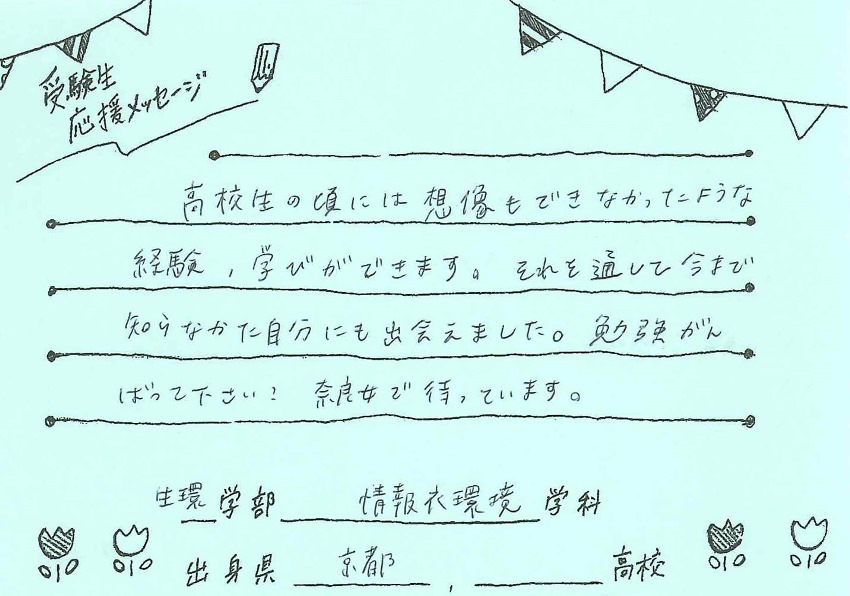 受験生
応援メッセージ
高校生の頃には想像もできなかったような
経験、学びができます。それを通して今まで
知らなかた自分にも出会えました。勉強がん
ばって下さい！ 奈良女で待っています。
生環学部 情報衣環境学科
出身県 京都 , 高校